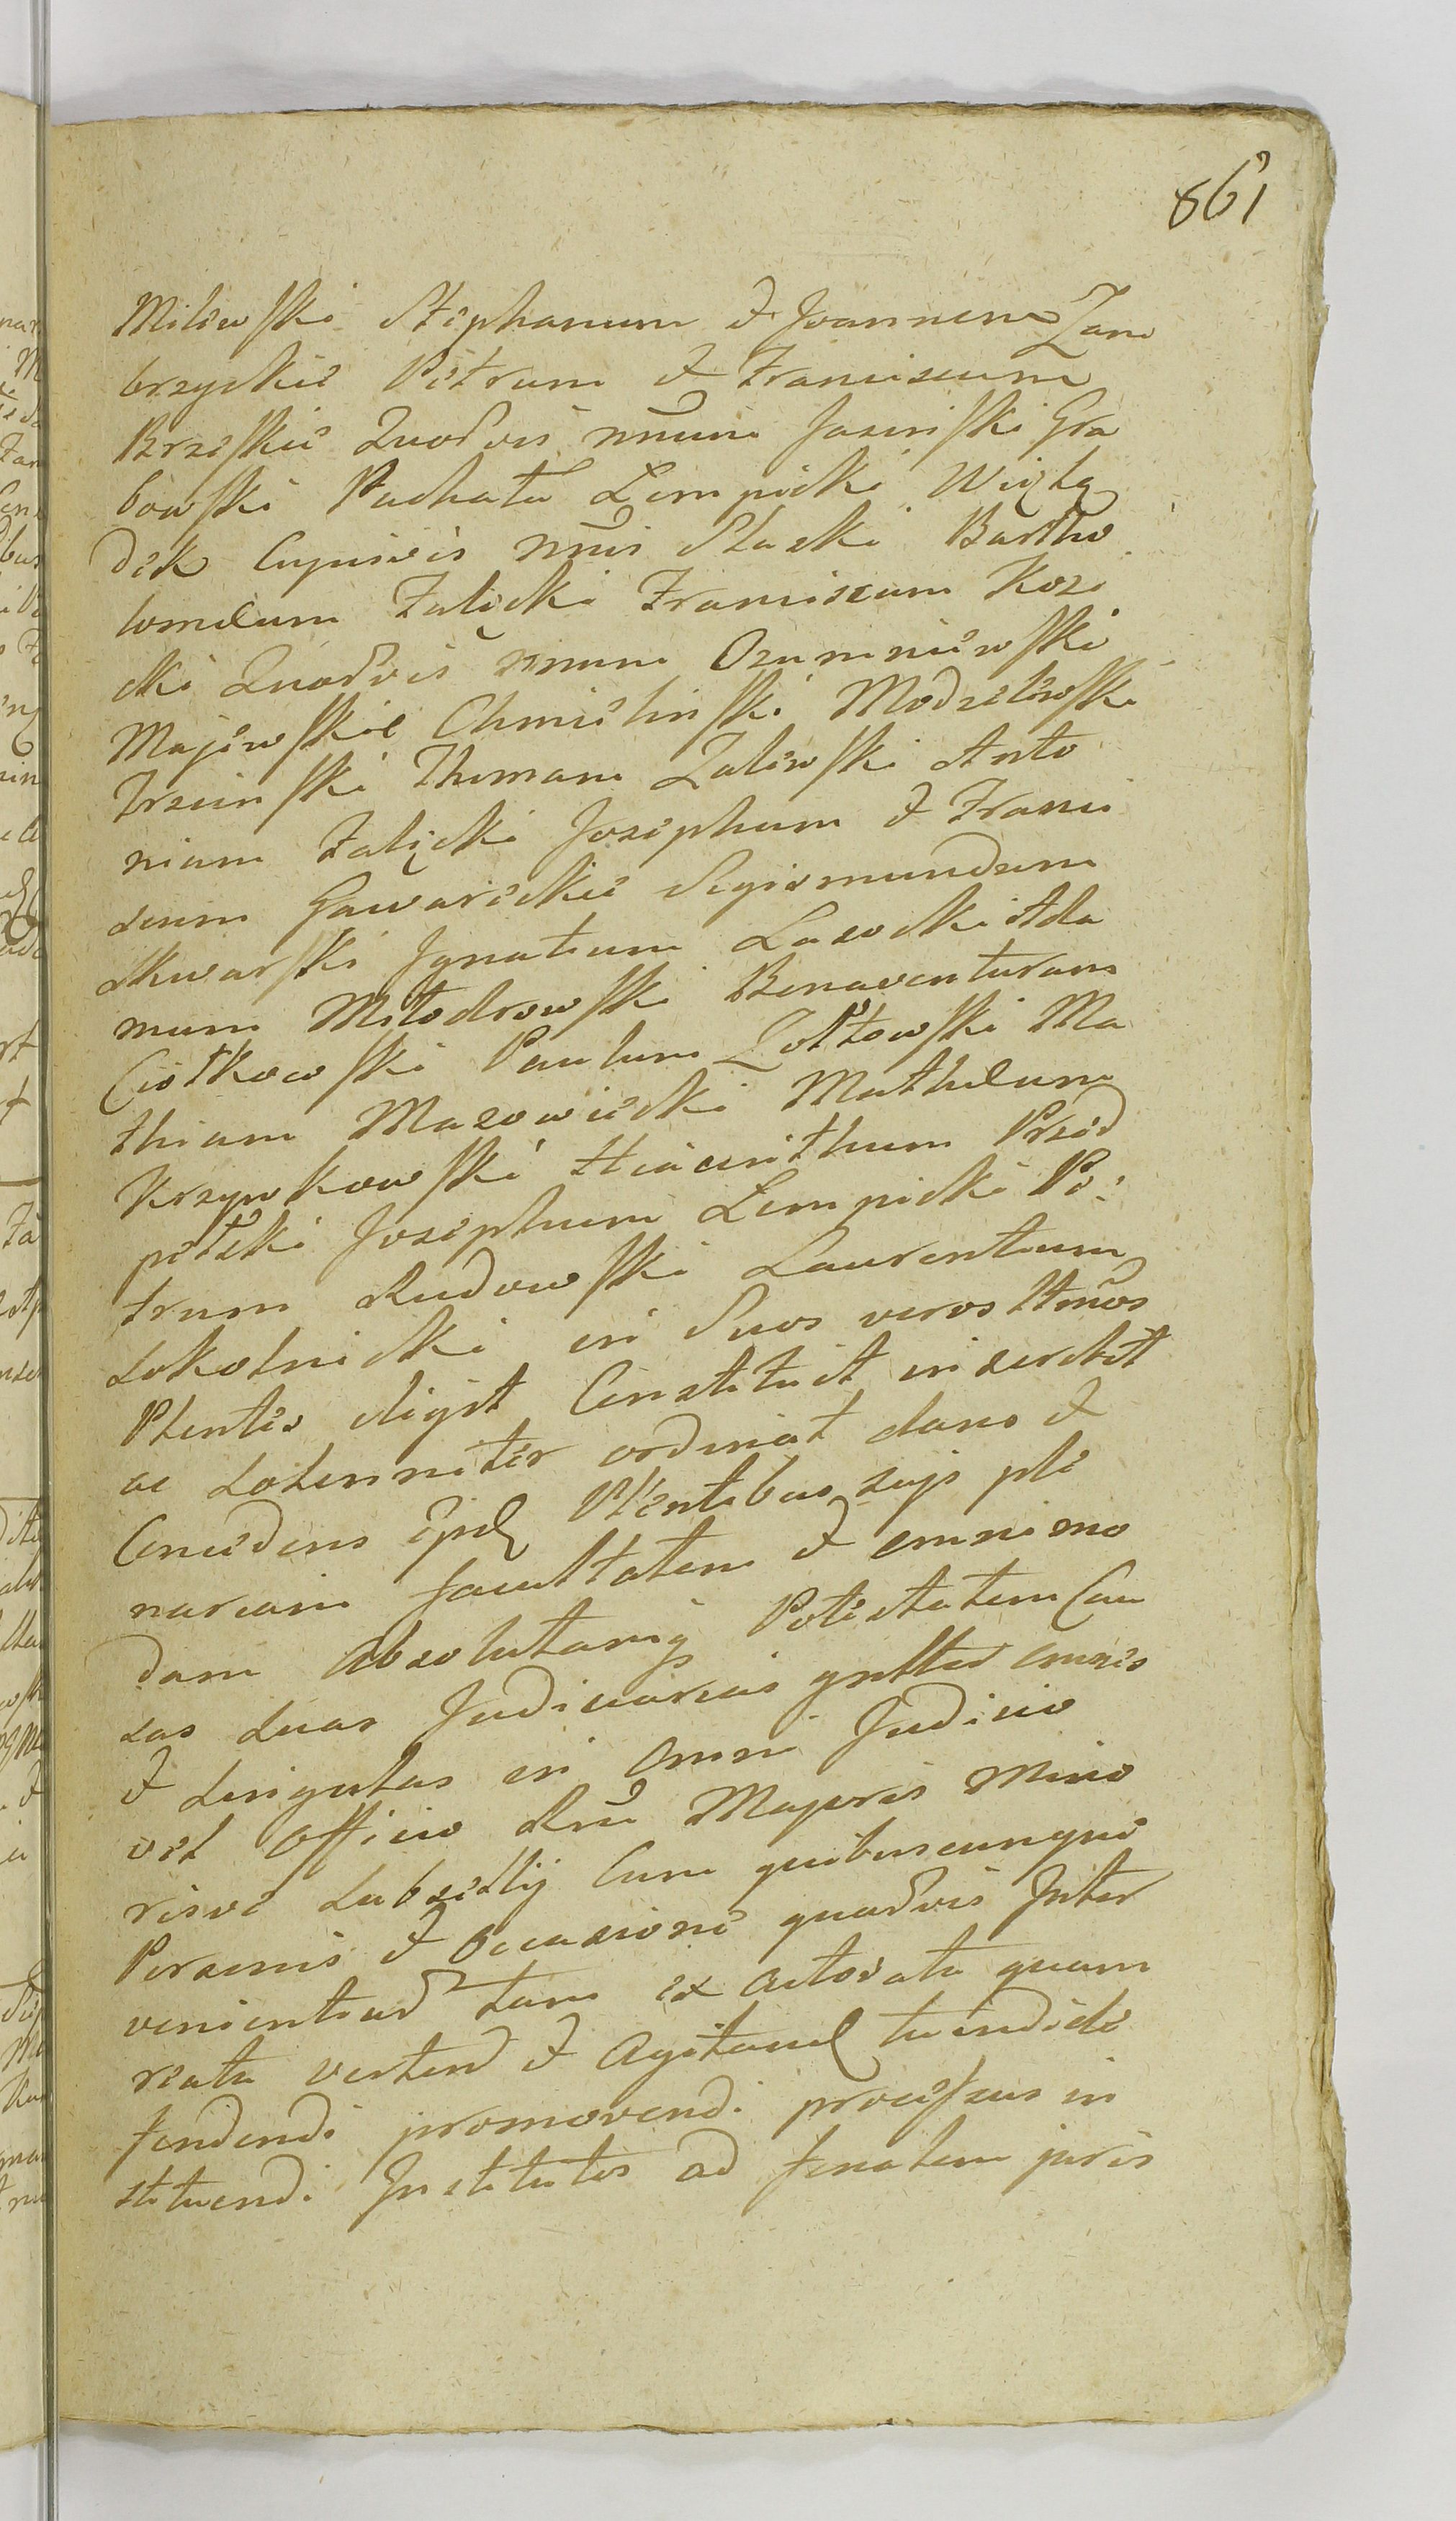 861
Milewski Stephanum et Joannem Zam
brzyckie Petrum et Franciscum
Brzeskie Quodvis nnum Jasinski Gra
bowski Puchała Lempicki Wizła
dek Cujusvis nnis Slaski Bartho
lomeum Zalęcki Franciscum Kozi
cki Quodvis nnum Ozumniewski
Majewskie Chmielinski Modzelewski
Trzcinski Thomam Zalewski Anto
nium Załęcki Josephum et Franci
scum Gawareckie Sigismundum
Skwarski Ignatium Lasocki Ada
mum Młodrowski Benaventuram
Ciołkowski Paulum Zołtowski Ma
thiam Mazowiecki Matheum
Krzywkowski Hiacinthum Przed
pełski Josephum Lempicki Pe:
trum Rudowski Laurentium
Sokolnicki in Suos veros ltmos
Plentes eligit Constituit inscribit
ac Solenniter ordinat dans et
Concedens Plentibus suis ple
nariam facultatem et omnimo
dam absolutamq Potestatem Cau
sas Suas Judiciarias gnlter omnes
et Singulas in Omni Judicio
vel Officio Rni Majoris Mino
risve Subsellij Cum quibuscunque
Personis et occasione quavis Inter
venientiud tam ex actoratu quam
reatu vertend et Agitand tuendi de
fendendi promovendi processus in
stituendi Institutos ad finalem juris